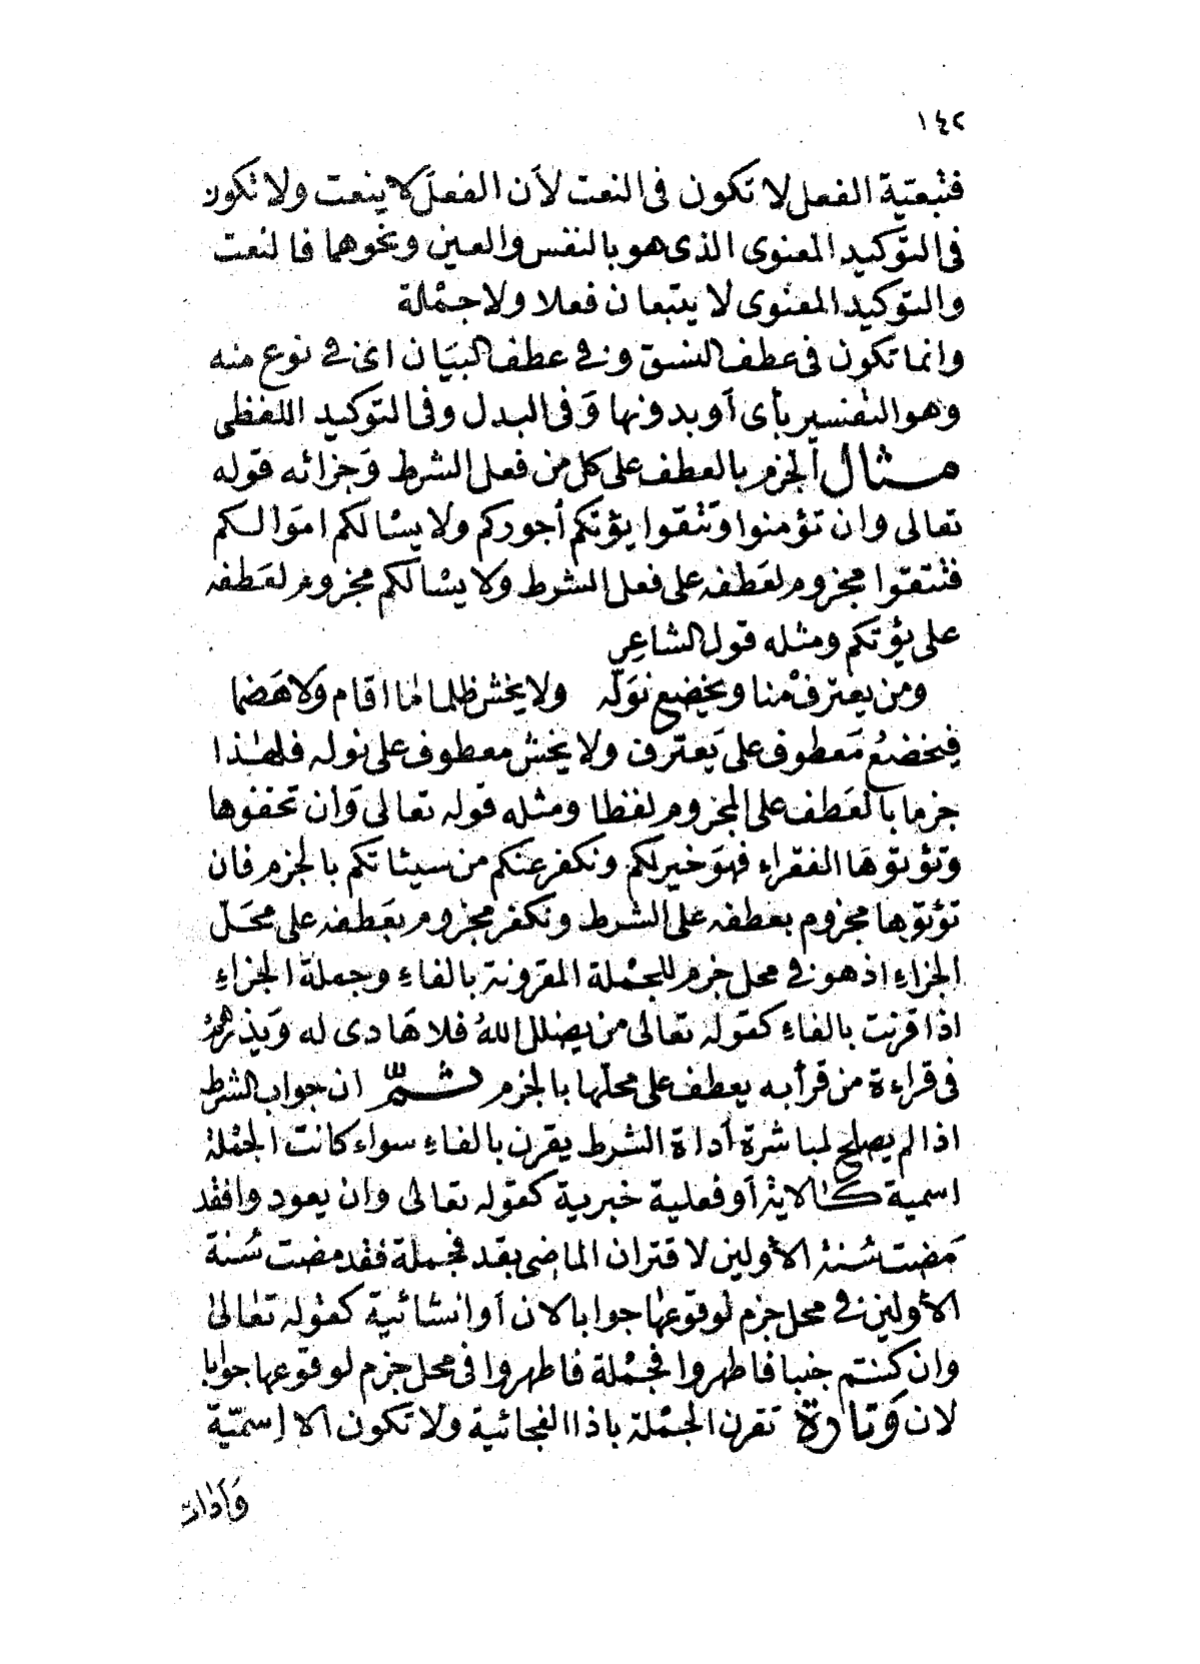 ١٤٢
فتبعية الفعل لا تكون فى النعت لأن الفعل لا ينعت ولا تكون
فى التوكيد المعنوى الذى هو بالنفس والعين ونحوهما فالنعت
والتوكيد المعنوى لا يتبعان فعلا ولا جملة
وانما تكون فى عطف النسق وفى عطف البيان اى فى نوع منه
وهو التفسير بأى أو بدونها وفى البدل وفى التوكيد اللفظى
مثال الجزم بالعطف على كل من فعل الشرط وجزائه قوله
تعالى وان تؤمنوا وتتقوا يؤتكم أجوركم ولا يسالكم اموالكم
فتتقوا مجزوم لعطفه على فعل الشرط ولا يسالكم مجزوم لعطفه
على يؤتكم ومثله قول الشاعر
ومن يعترف منا ويخضع نوله ولا يخش ظلما لما اقام ولا هضما
فيخضع معطوف على يعترف ولا يخش معطوف على نوله فلهذا
جزما بالعطف على المجزوم لفظا ومثله قوله تعالى وان تخفوها
وتؤتوها الفقراء فهو خير لكم ونكفر عنكم من سيئاتكم بالجزم فان
تؤتوها مجزوم بعطفه على الشرط ونكفر مجزوم بعطفه على محل
الجزاء اذ هو فى محل جزم للجملة المقرونة بالفاء وجملة الجزاء
اذا قرنت بالفاء كقوله تعالى من يضلل الله فلا هادى له ويذرهم
فى قراءة من قرأ به يعطف على محلها بالجزم ثم ان جواب الشرط
اذا لم يصلح لمباشرة أداة الشرط يقرن بالفاء سواء كانت الجملة
اسمية كالاية أو فعلية خبرية كقوله تعالى وان يعودوا فقد
مضت سنة الأولين لاقتران الماضى بقد فجملة فقد مضت سنة
الأولين فى محل جزم لوقوعها جوابا لان أو انشائية كقوله تعالى
وان كنتم جنبا فاطهروا فجملة فاطهروا فى محل جزم لوقوعها جوابا
لان وتارة تقرن الجملة باذا الفجائية ولا تكون الا اسمية
وأداة